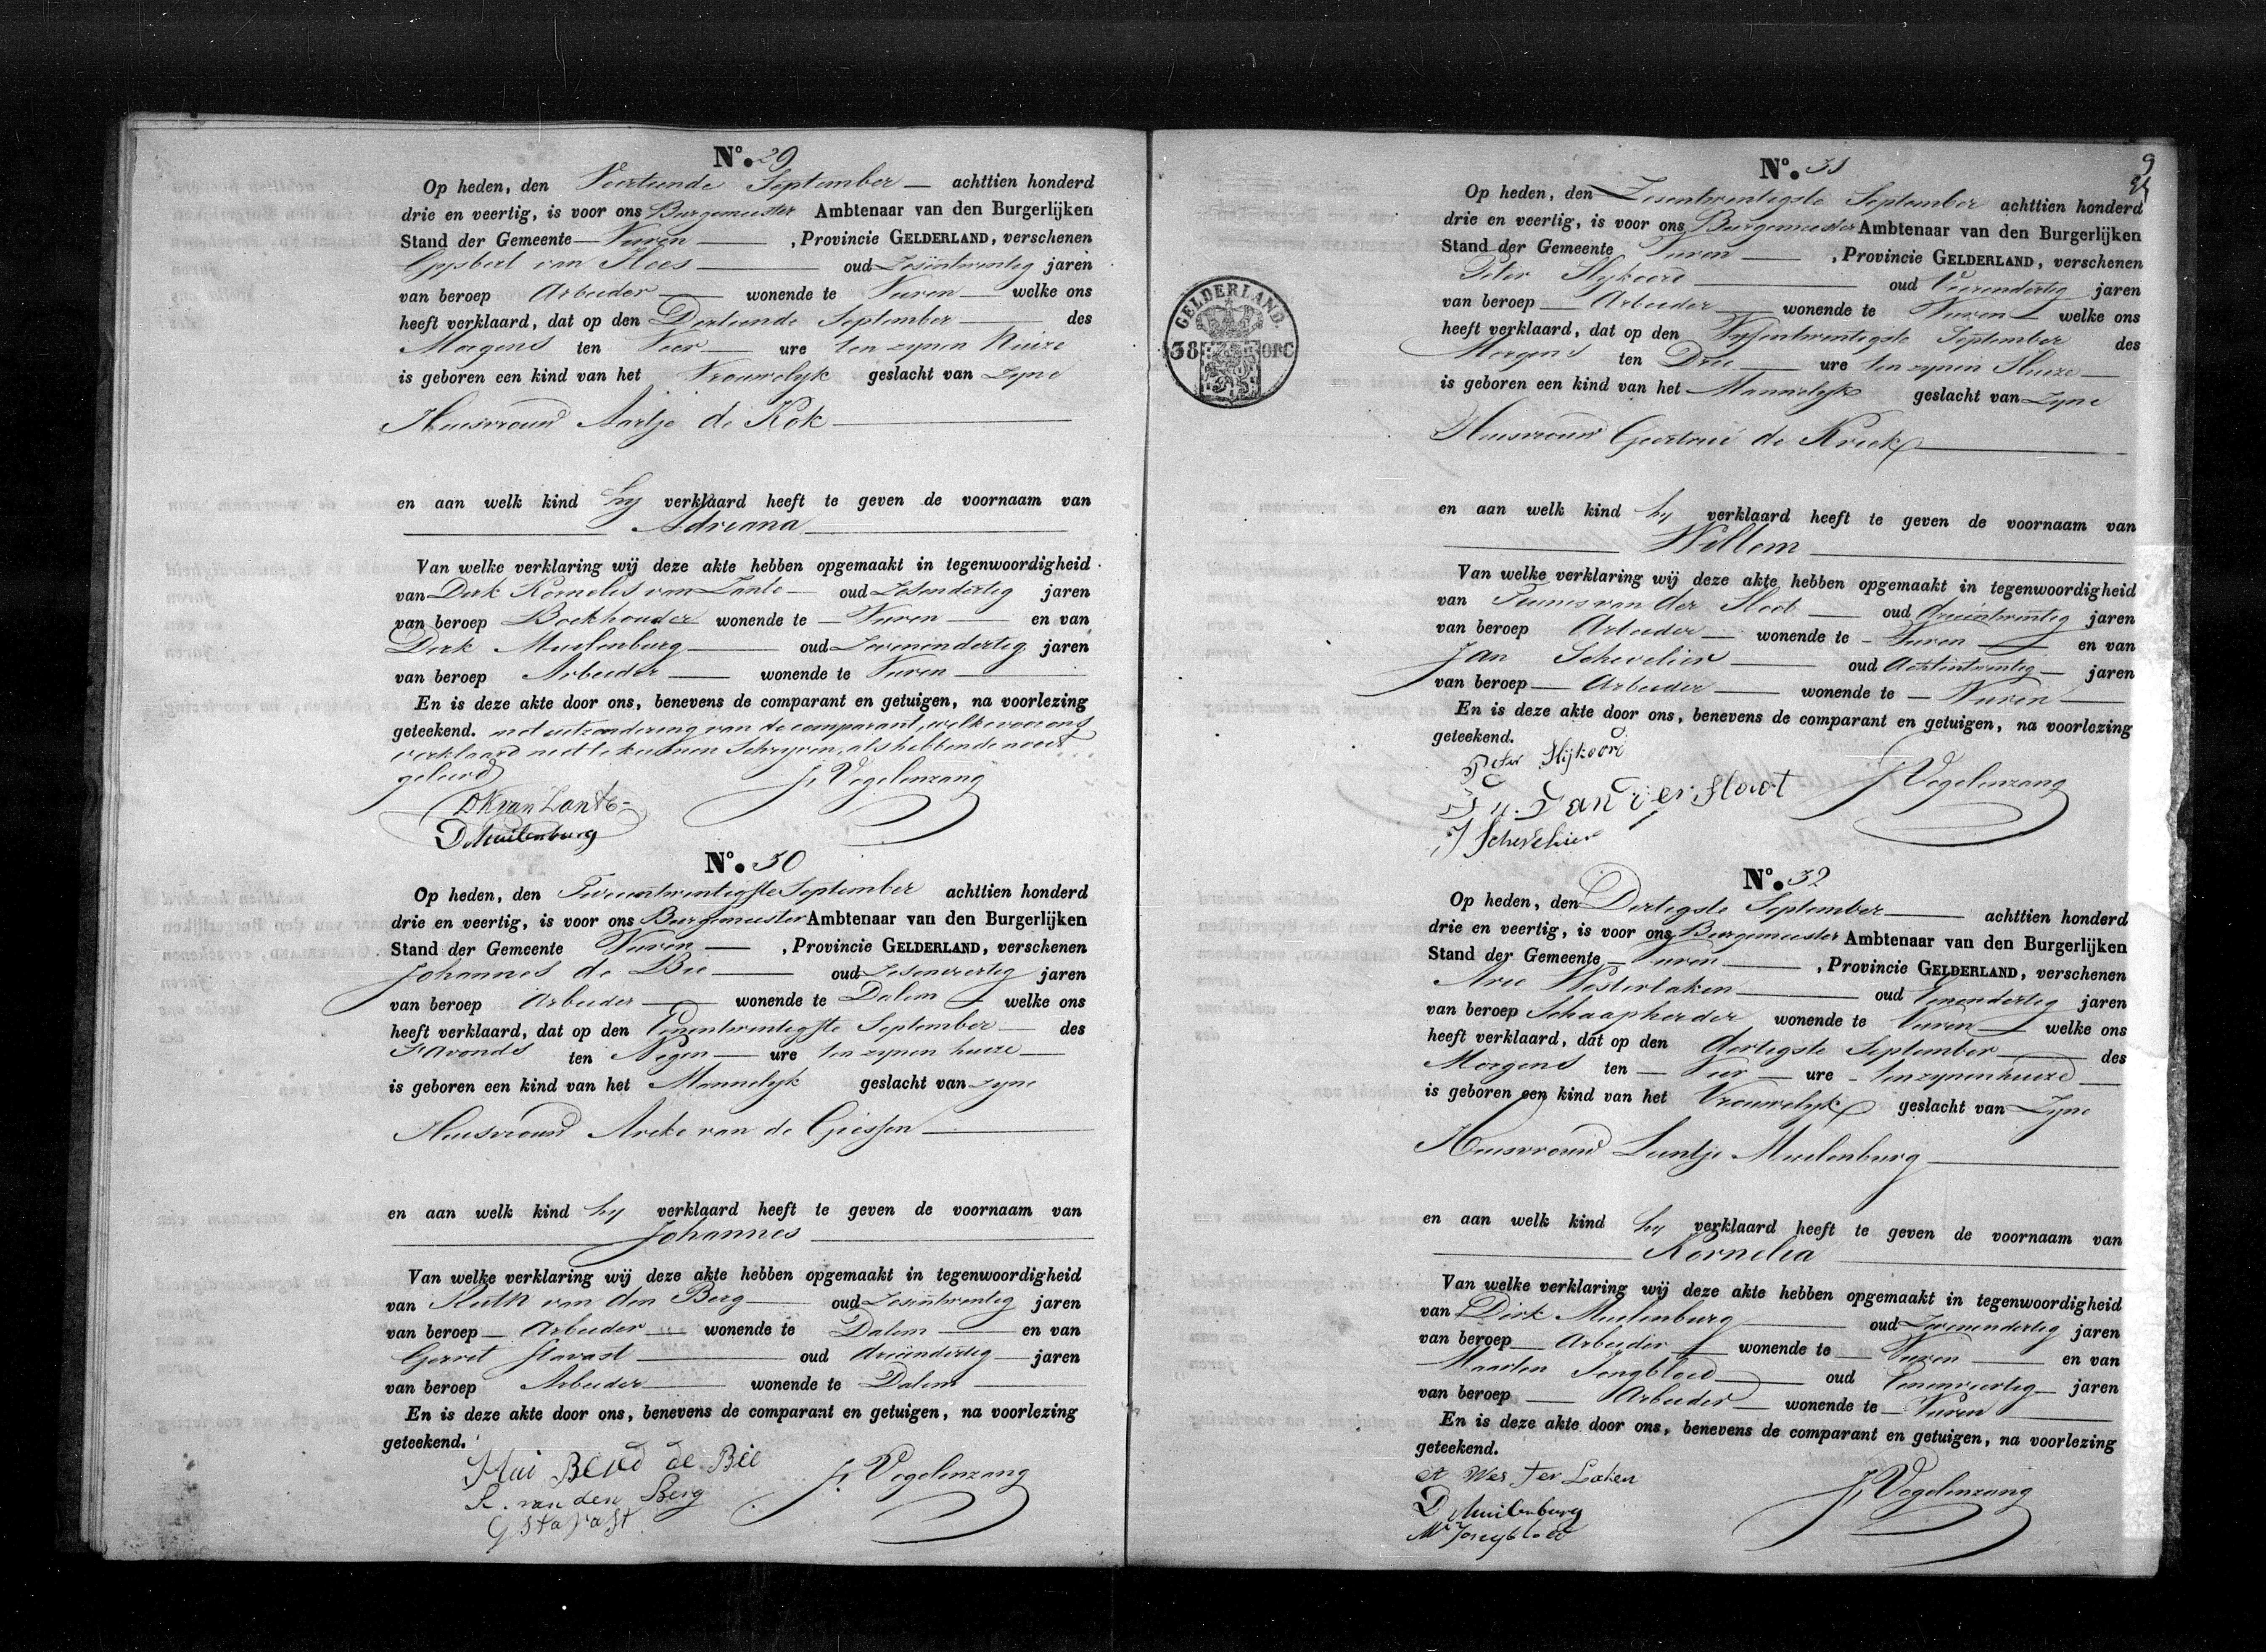 N.º 29
Op heden, den Veertiende September achttien honderd
drie en veertig, is voor ons Burgemeester Ambtenaar van den Burgerlijken
Stand der Gemeente Vuren, Provincie GELDERLAND, verschenen
Gysbert van Hees oud Zesentwintig jaren
van beroep Arbeider wonende te Vuren welke ons
heeft verklaard, dat op den Dertiende September des
Morgens ten Vier ure ten zynen Huize
is geboren een kind van het Vrouwelyk geslacht van Zyne
Huisvrouw Aartje de Kok
en aan welk kind hy verklaard heeft te geven de voornaam van
Adriana
Van welke verklaring wij deze akte hebben opgemaakt in tegenwoordigheid
van Dirk Kornelis van Zante oud Zesendertig jaren
van beroep Boekhouder wonende te Vuren en van
Dirk Muilenburg oud Zevenendertig jaren
van beroep Arbeider wonende te Vuren
En is deze akte door ons, benevens de comparant en getuigen, na voorlezing
geteekend. met uitzondering van de comparant, welke voor ons
verklaard niet te kunnen Schryven, als hebbende nooit
geleerd
J, Vogelenzang
DK van Zante
D Muilenburg
N.º 30
Op heden, den Tweeentwintigste September achttien honderd
drie en veertig, is voor ons Burgemeester Ambtenaar van den Burgerlijken
Stand der Gemeente Vuren, Provincie GELDERLAND, verschenen
Johannes de Bie oud Zesenveertig jaren
van beroep Arbeider wonende te Dalem welke ons
heeft verklaard, dat op den Eenentwintigste September des
S'Avonds ten Negen ure ten zynen huize
is geboren een kind van het Mannelyk geslacht van zyne
Huisvrouw van de Giessen
en aan welk kind hy verklaard heeft te geven de voornaam van
Johannes
Van welke verklaring wij deze akte hebben opgemaakt in tegenwoordigheid
van Ruth van den Berg oud Zesentwintig jaren
van beroep Arbeider wonende te Dalem en van
Gerrit Stavast oud drieëndertig jaren
van beroep Arbeider wonende te Dalem
En is deze akte door ons, benevens de comparant en getuigen, na voorlezing
geteekend.
de Bie
J, Vogelenzang
R. van den Berg
G Stavast
9
N.º 31
Op heden, den Zesentwintigste September achttien honderd
drie en veertig, is voor ons Burgemeester Ambtenaar van den Burgerlijken
Stand der Gemeente Vuren, Provincie GELDERLAND, verschenen
Peter Slykoord oud Vierendertig jaren
van beroep Arbeider wonende te Vuren welke ons
heeft verklaard, dat op den Vyfentwintigste September des
Morgens ten Drie ure ten zynen Huize
is geboren een kind van het Mannelyk geslacht van Zyne
Huisvrouw de Kriek
en aan welk kind hy verklaard heeft te geven de voornaam van
Willem
Van welke verklaring wij deze akte hebben opgemaakt in tegenwoordigheid
van Teunis van der Sloot oud drieëntwintig jaren
van beroep Arbeider wonende te Vuren en van
Jan Schevelier oud Achtentwintig jaren
van beroep Arbeider wonende te Vuren
En is deze akte door ons, benevens de comparant en getuigen, na voorlezing
geteekend.
Peter Slijkoord
J Vogelenzang
Van der Sloot
J Schevelier
GELDERLAND.
38 OPC
N.º 32
Op heden, den Dertigste September achttien honderd
drie en veertig, is voor ons Burgemeester Ambtenaar van den Burgerlijken
Stand der Gemeente Vuren, Provincie GELDERLAND, verschenen
Arie Westerlaken oud Eenendertig jaren
van beroep Schaapherder wonende te Vuren welke ons
heeft verklaard, dat op den dertigste September des
Morgens ten Vier ure ten zynen huize
is geboren een kind van het Vrouwelyk geslacht van Zyne
Huisvrouw Luntje Muilenburg
en aan welk kind hy verklaard heeft te geven de voornaam van
Kornelia
Van welke verklaring wij deze akte hebben opgemaakt in tegenwoordigheid
van Dirk Muilenburg oud Zevenendertig jaren
van beroep Arbeider wonende te Vuren en van
Maarten Jongbloed oud Eenenveertig jaren
van beroep Arbeider wonende te Vuren
En is deze akte door ons, benevens de comparant en getuigen, na voorlezing
geteekend.
A Wes ter Laken
J, Vogelenzang
D Muilenburg
M Jongbloed